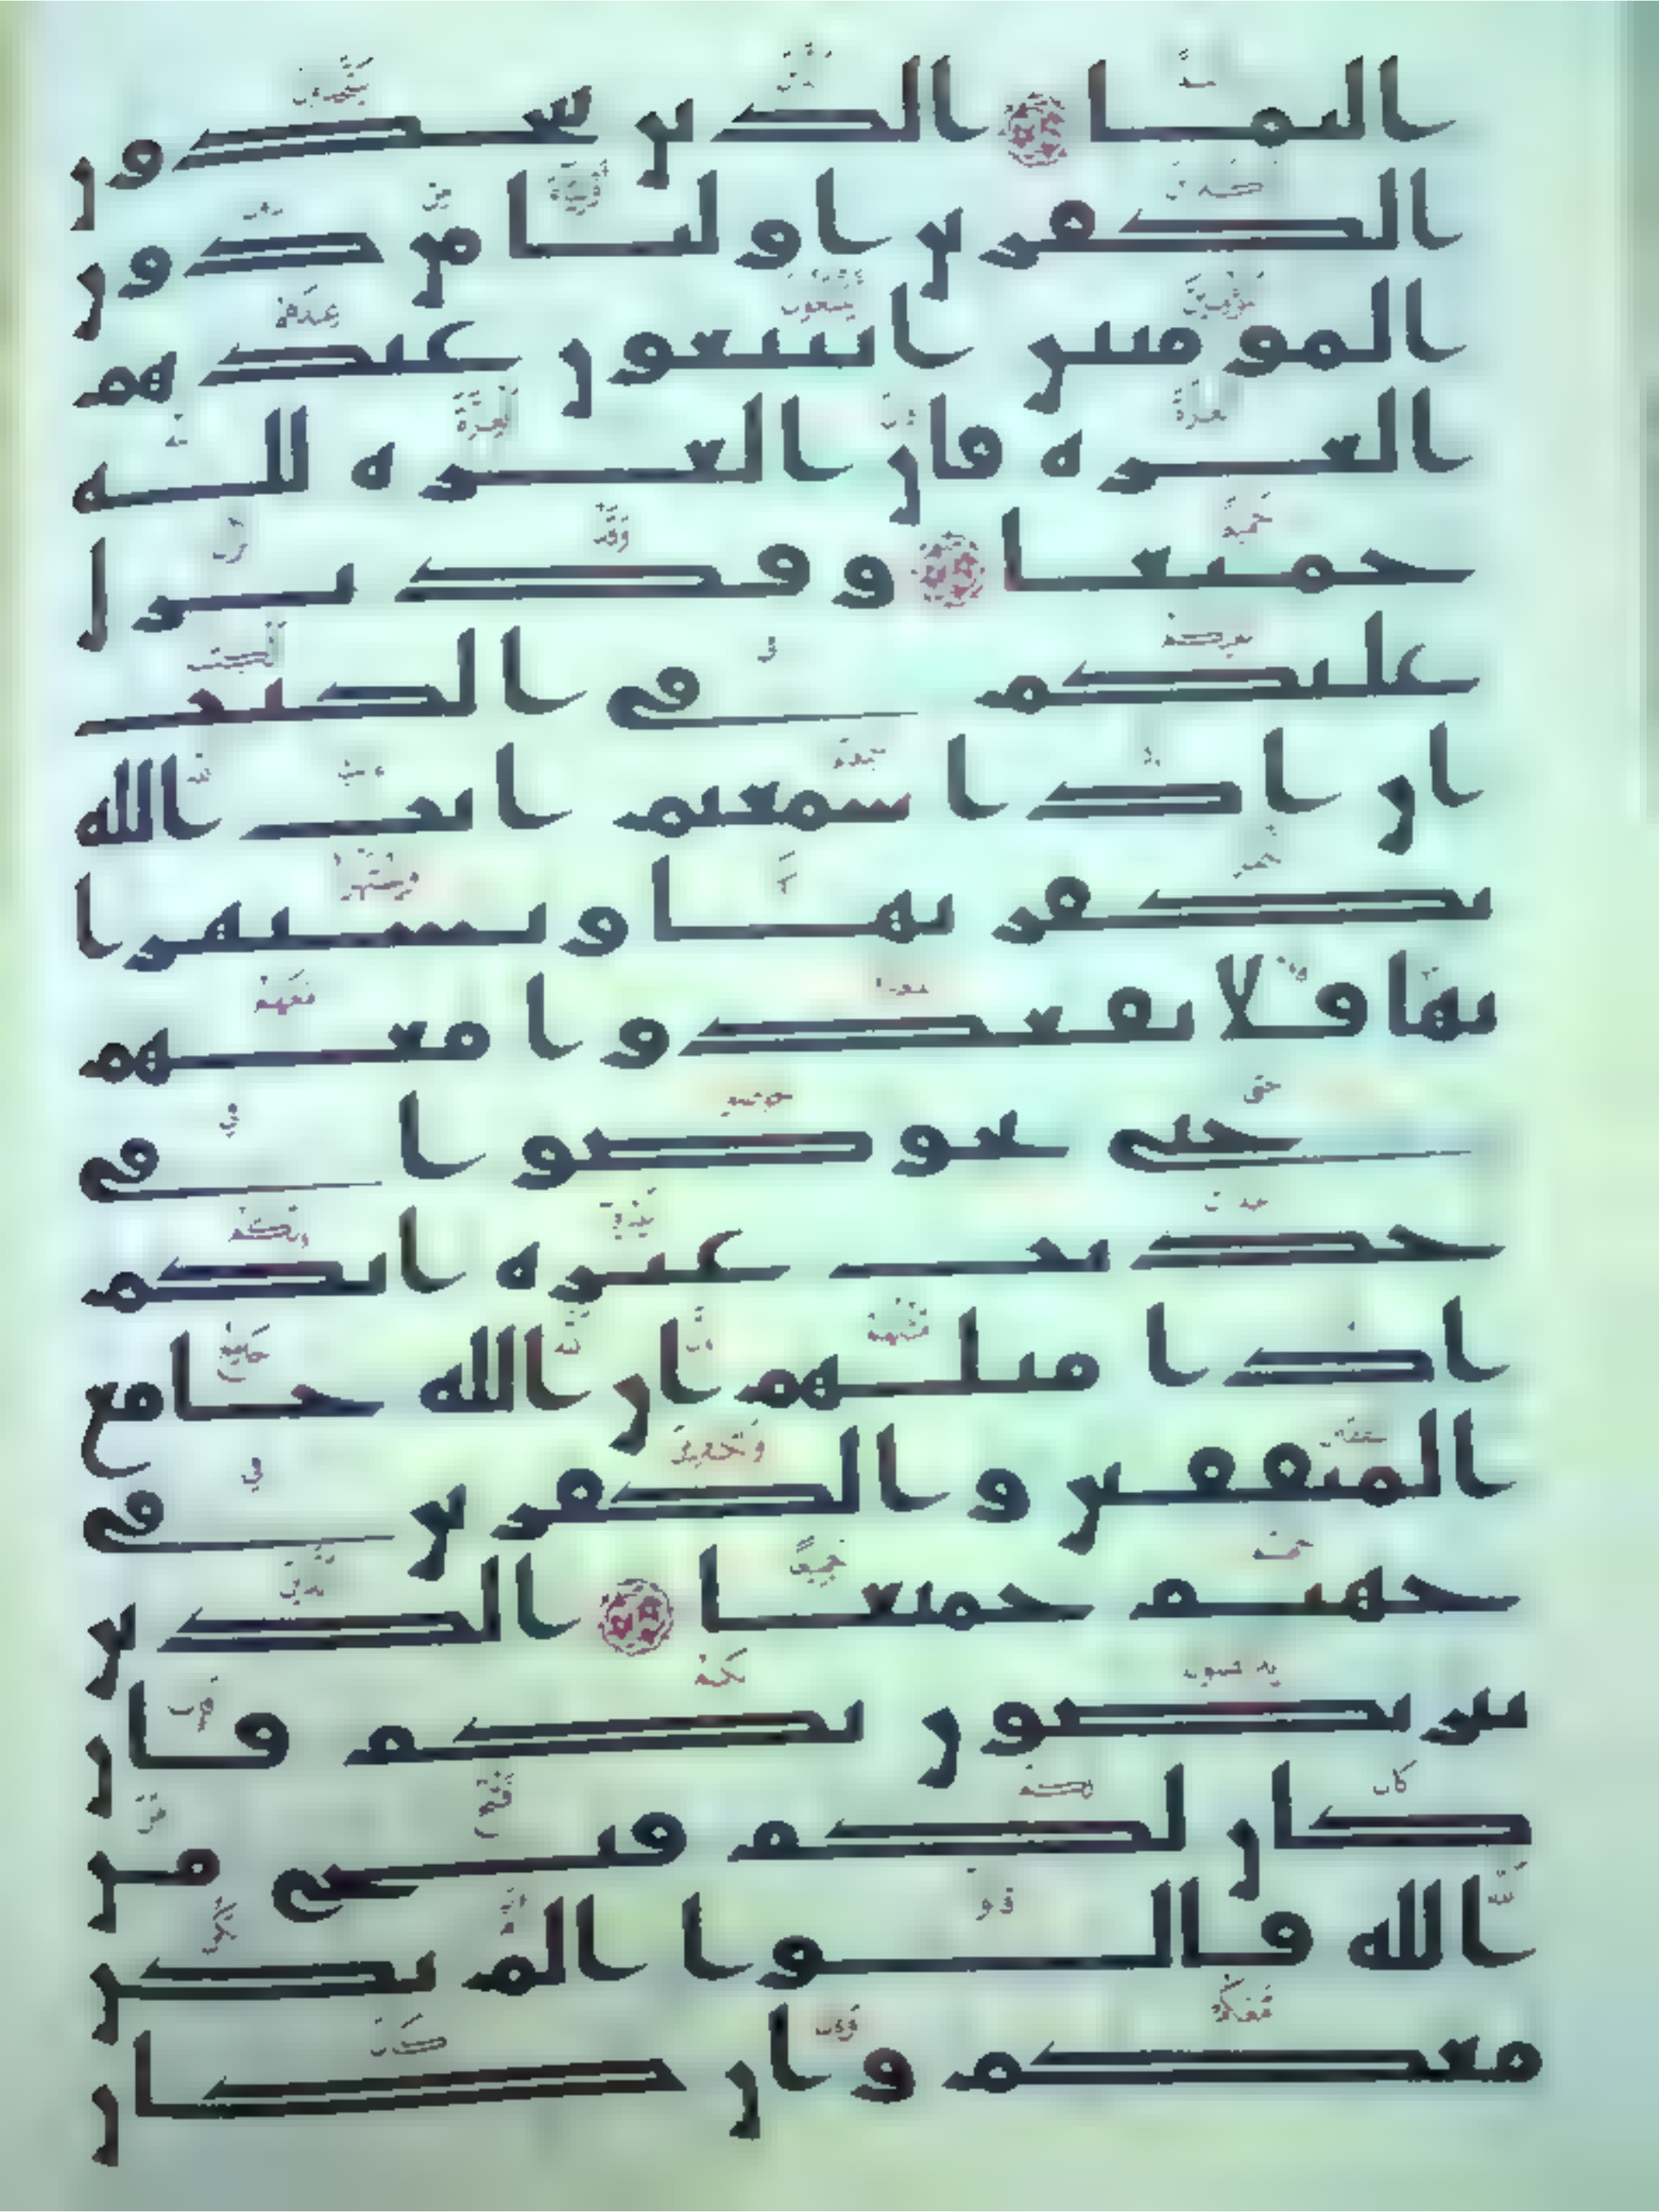 اليما الذين يتخذون
الكفرين اوليا من دون
المومنين ايبتغون عندهم
العزة فان العزة لله
جميعا وقد نزل
عليكم في الكتب
ان اذا سمعتم ايت الله
يكفر بها ويستهزا
بها فلا تقعدوا معهم
حتى يخوضوا في
حديث غيره انكم
اذا مثلهم ان الله جامع
المنفقين والكفرين في
جهنم جميعا الذين
يتربصون بكم فان
كان لكم فتح من
الله قالوا الم نكن
معكم وان كان